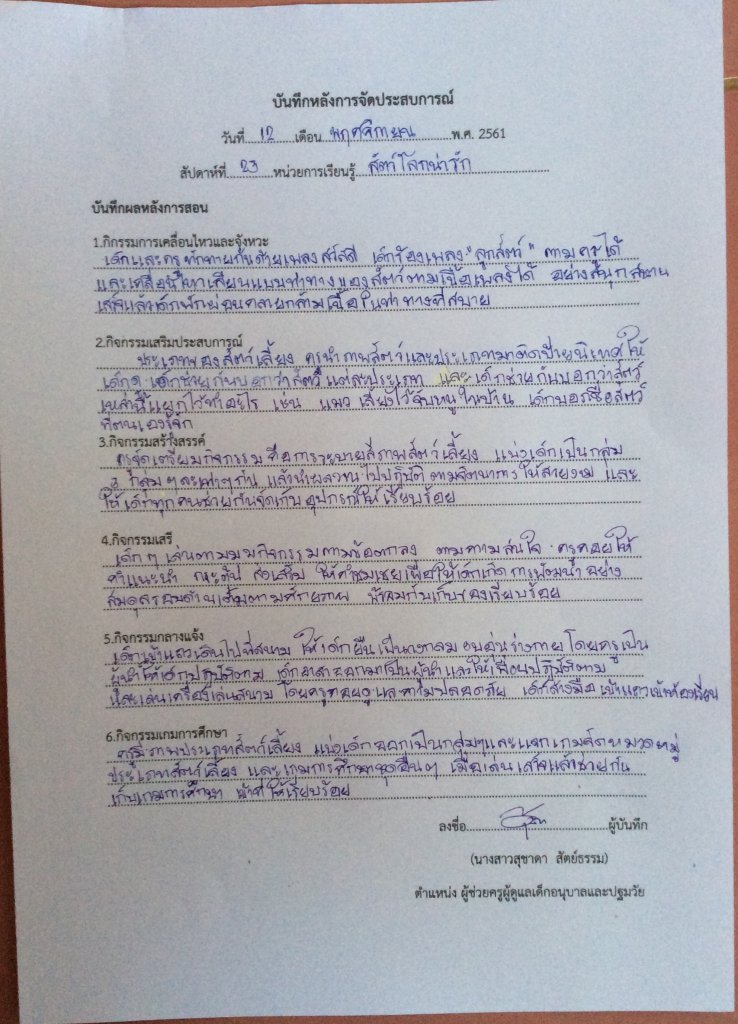 บันทึกหลังการจัดประสบการณ์
วันที่ 12 เดือน พฤศจิกายน พ.ศ. 2561
สัปดาห์ที่ 23 หน่วยการเรียนรู้ สัตว์โลกน่ารัก
บันทึกผลหลังการสอน
1.กิกรรมการเคลื่อนไหวและจังหวะ
เด็กและครูทักทายกันด้วยเพลงสวัสดี เด็กร้องเพลง "ลูกสัตว์" ตามครูได้
และเคลื่อนไหวเลียนแบบท่าทางของสัตว์ตามเนื้อเพลงได้ อย่างสนุกสนาน
เสร็จแล้วเด็กพักผ่อนคลายกล้ามเนื้อในท่าทางที่สบาย
2.กิจกรรมเสริมประสบการณ์
ประเภทของสัตว์เลี้ยง ครูนำภาพสัตว์และประเภทมาติดป้ายนิเทศให้
เด็กดู เด็กช่วยกันบอกว่าสัตว์ แต่ละประเภท และเด็กช่วยกันบอกว่าสัตว์
เหล่านี้ ไว้ทำอะไร เช่น แมว เลี้ยงไว้จับหนูในบ้าน เด็กบอกชื่อสัตว์
ที่ตนเองรู้จัก
3.กิจกรรมสร้างสรรค์
ครูจัดเตรียมกิจกรรม คือการระบายสีภาพสัตว์เลี้ยง แบ่งเด็กเป็นกลุ่ม
3 กลุ่มๆละเท่าๆกัน แล้วนำผลงานไปปฏิบัติ ตามจินตนาการ ให้สวยงาม และ
ให้เด็กทุกคนช่วยกันจัดเก็บอุปกรณ์ให้เรียบร้อย
4.กิจกรรมเสรี
เด็กๆ เล่นตามมุมกิจกรรมตามข้อตกลง ตามความสนใจ ครูคอยให้
คำแนะนำ กระตุ้น ส่งเสริม ให้คำชมเชยเพื่อให้เด็กเกิดการพัฒนาอย่าง
สมดุลรอบด้านเต็มตามศักยภาพ พร้อมกับเก็บของเรียบร้อย
5.กิจกรรมกลางแจ้ง
เด็กเข้าแถวเดินไปที่สนาม ให้เด็กยืนเป็นวงกลม อบอุ่นร่างกาย โดยครูเป็น
ผู้นำให้เด็กปฏิบัติตาม เด็กอาสาออกมาเป็นผู้นำและให้เพื่อนปฏิบัติตาม
และเล่นเครื่องเล่นสนาม โดยครูคอยดูแลความปลอดภัย เด็กล้างมือ เข้าแถวเข้าห้องเรียน
6.กิจกรรมเกมการศึกษา
ครูมีภาพประเภทสัตว์เลี้ยง แบ่งเด็กออกเป็นกลุ่มๆและแจกเกมจัดหมวดหมู่
ประเภทสัตว์เลี้ยง และเกมการศึกษาชุดอื่นๆ เมื่อเล่นเสร็จแล้วช่วยกัน
เก็บเกมการศึกษา เข้าที่ให้เรียบร้อย
ลงชื่อ ผู้บันทึก
(นางสาวสุชาดา สัตย์ธรรม)
ตำแหน่ง ผู้ช่วยครูผู้ดูแลเด็กอนุบาลและปฐมวัย